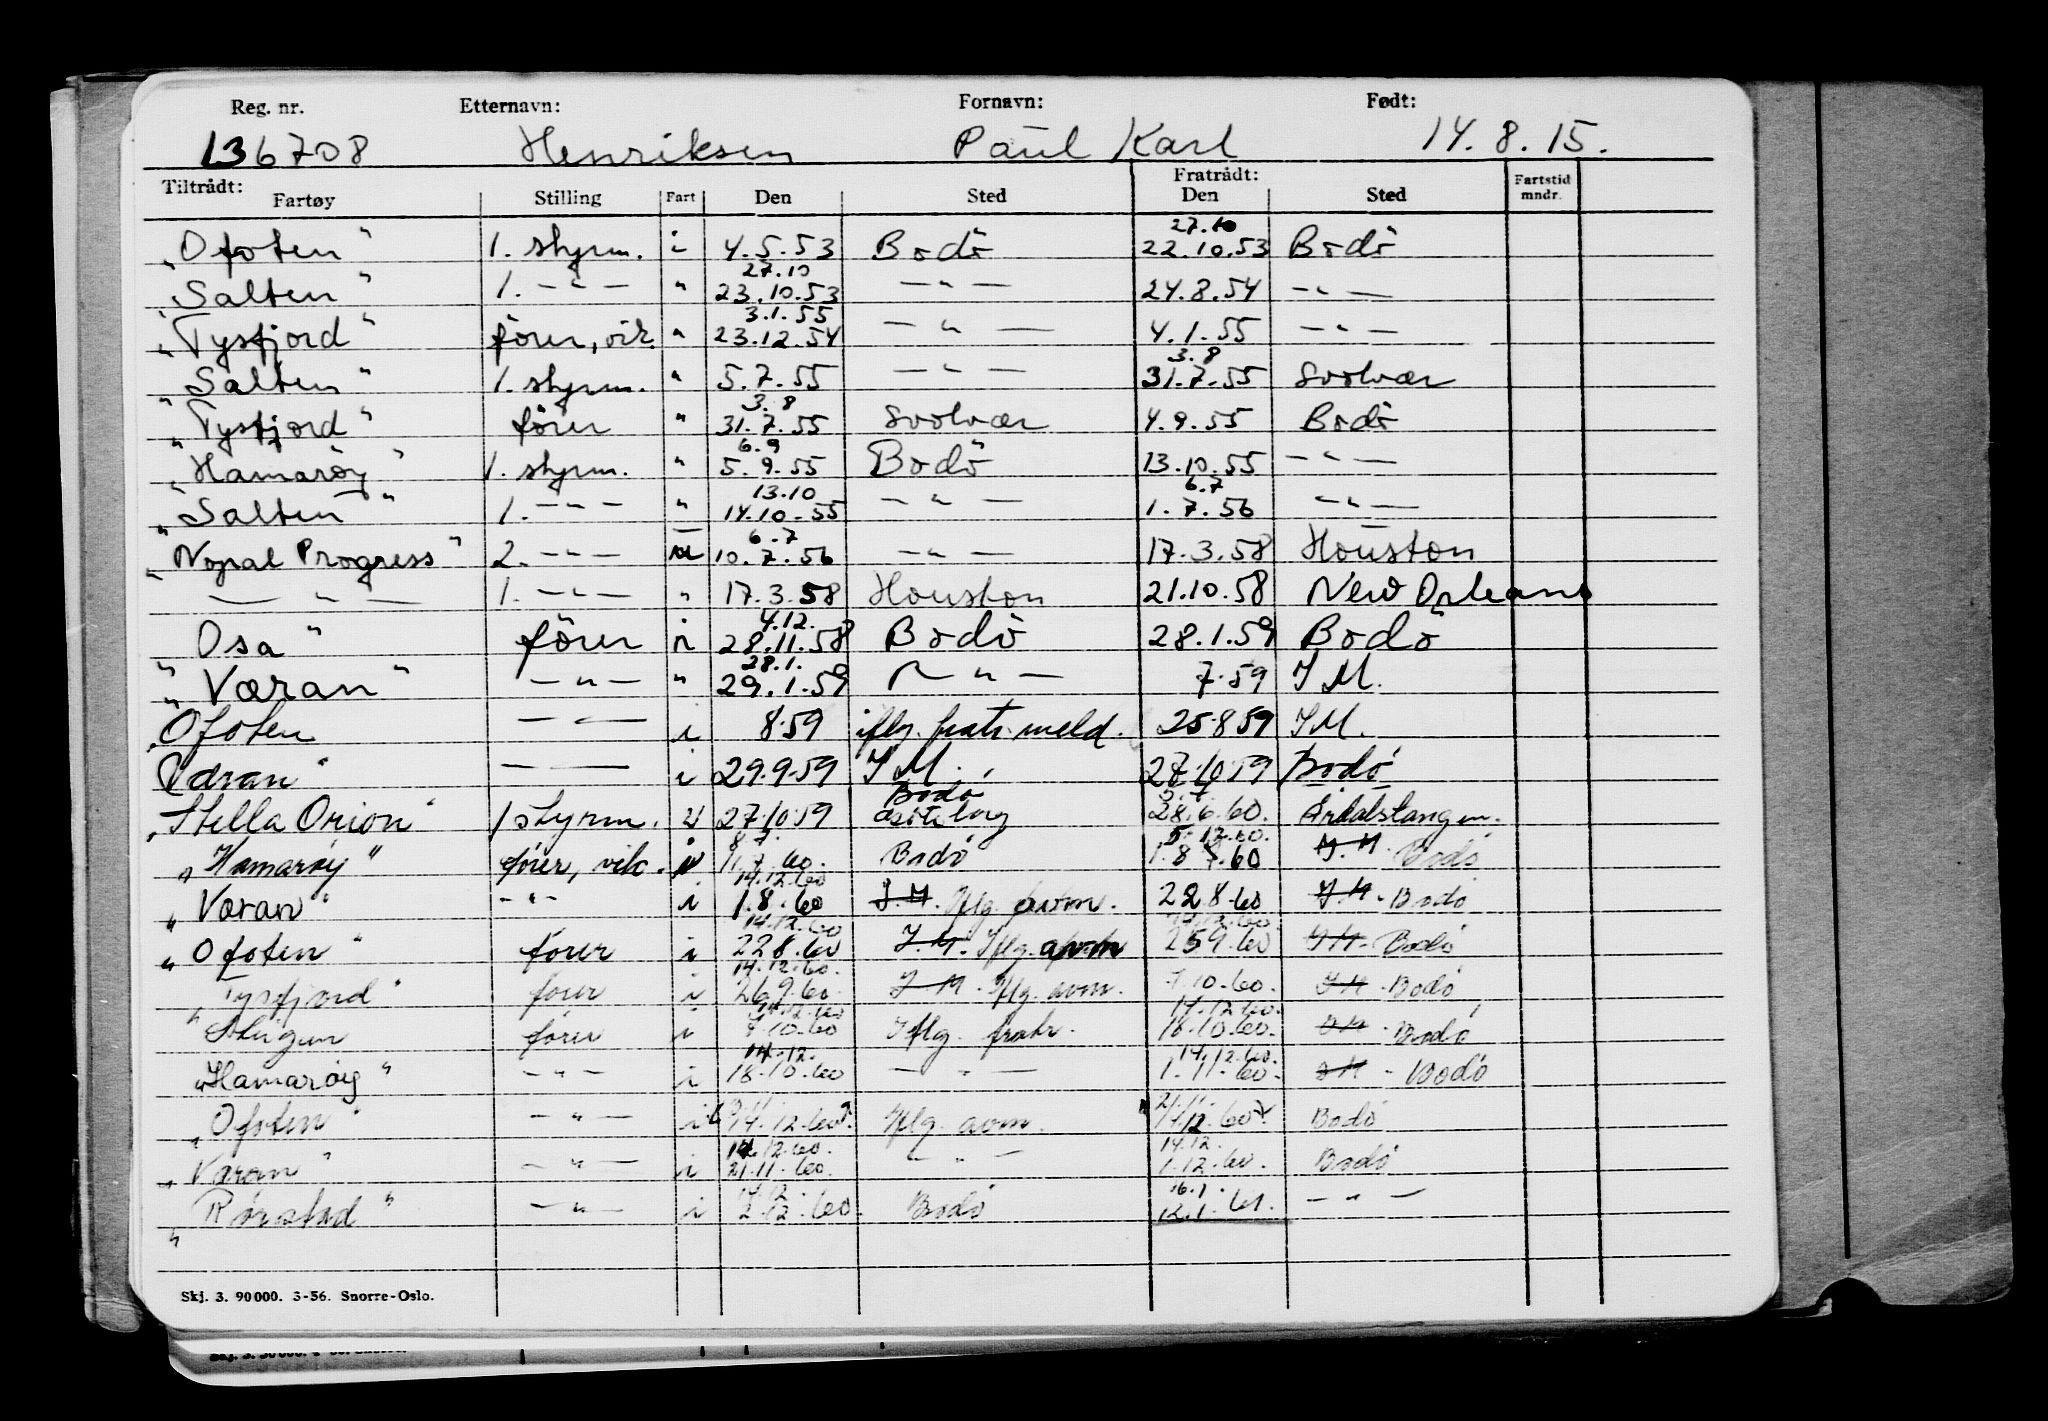 Reg. nr. Etternavn: Fornavn: Født:
136708 Henriksen Paul Karl 14.8.15.
Tiltrådt: Fratrådt: Fartstid
Fartøy Stilling Fart Den Sted Den Sted mndr.
27.10
"Ofoten" 1. styrm. i 4.5.53 Bodö 22.10.53 Bodö
27.10
"Salten" 1. -"- " 23.10.53 -"- 24.8.54 -"-
3.1.55
"Tysfjord" förer, vik. " 23.12.54 -"- 4.1.55 -"-
3.8
"Salten" 1. styrm. " 5.7.55 -"- 31.7.55 Svolvær
3.8
"Tysfjord" förer " 31.7.55 Svolvær 4.9.55 Bodö
6.9
"Hamaröy" 1. styrm. " 5.9.55 Bodö 13.10.55 -"-
13.10 6.7
"Salten" 1. -"- " 14.10.55 -"- 1.7.56 -"-
6.7
"Nopal Progress" 2. -"- u 10.7.56 -"- 17.3.58 Houston
-"- 1. -"- " 17.3.58 Houston 21.10.58 New Orleans
4.12.
"Osa" förer i 28.11.58 Bodö 28.1.59 Bodö
28.1.
"Væran" -"- " 29.1.59 -"- 7.59 I M.
Ofoten -"- i 8.59 iflg. fratr. meld. 25.8.59 I M.
Væran" -"- i 29.9.59 I M. 27.10.59 Bodö
Bodø
"Stella Orion" 1 styrm. u 27.10.59 28.6.60. Årdalstangen.
8.7. 5.12.60.
"Hamarøy" fører, vik. i 11.7.60. Bodø 1.8.60 I.M. Bodø
14.12.60
"Væran" -"- i 1.8.60 I.M. Iflg. avm. 22.8.60 I.M. - Bodø
14.12.60
"Ofoten" fører i 22.8.60 I.M. Iflg. avm 25.9.60 I M. Bodø
14.12.60.
"Tysfjord" fører i 26.9.60. I M. Iflg. avm. 7.10.60. I M - Bodø
14.12.60.
"Steigen fører i 8.10.60 Iflg. fratr. 18.10.60. I M. Bodø
14.12. 14.12.60.
"Hamarøy" -"- i 18.10.60 -"- 1.11.60. I M - Bodø
21.11.
"Ofoten" -"- i 14.12.60 Iflg. avm. 14.12.60 Bodø
14.12.60. 14.12.
"Væran" -"- i 21.11.60. -"- 1.12.60. Bodø
14.12. 16.1.
"Rørstad" -"- i 2.12.60. Bodø 12.1.61. -"-
Skj. 3. 90000. 3-56. Snorre-Oslo.